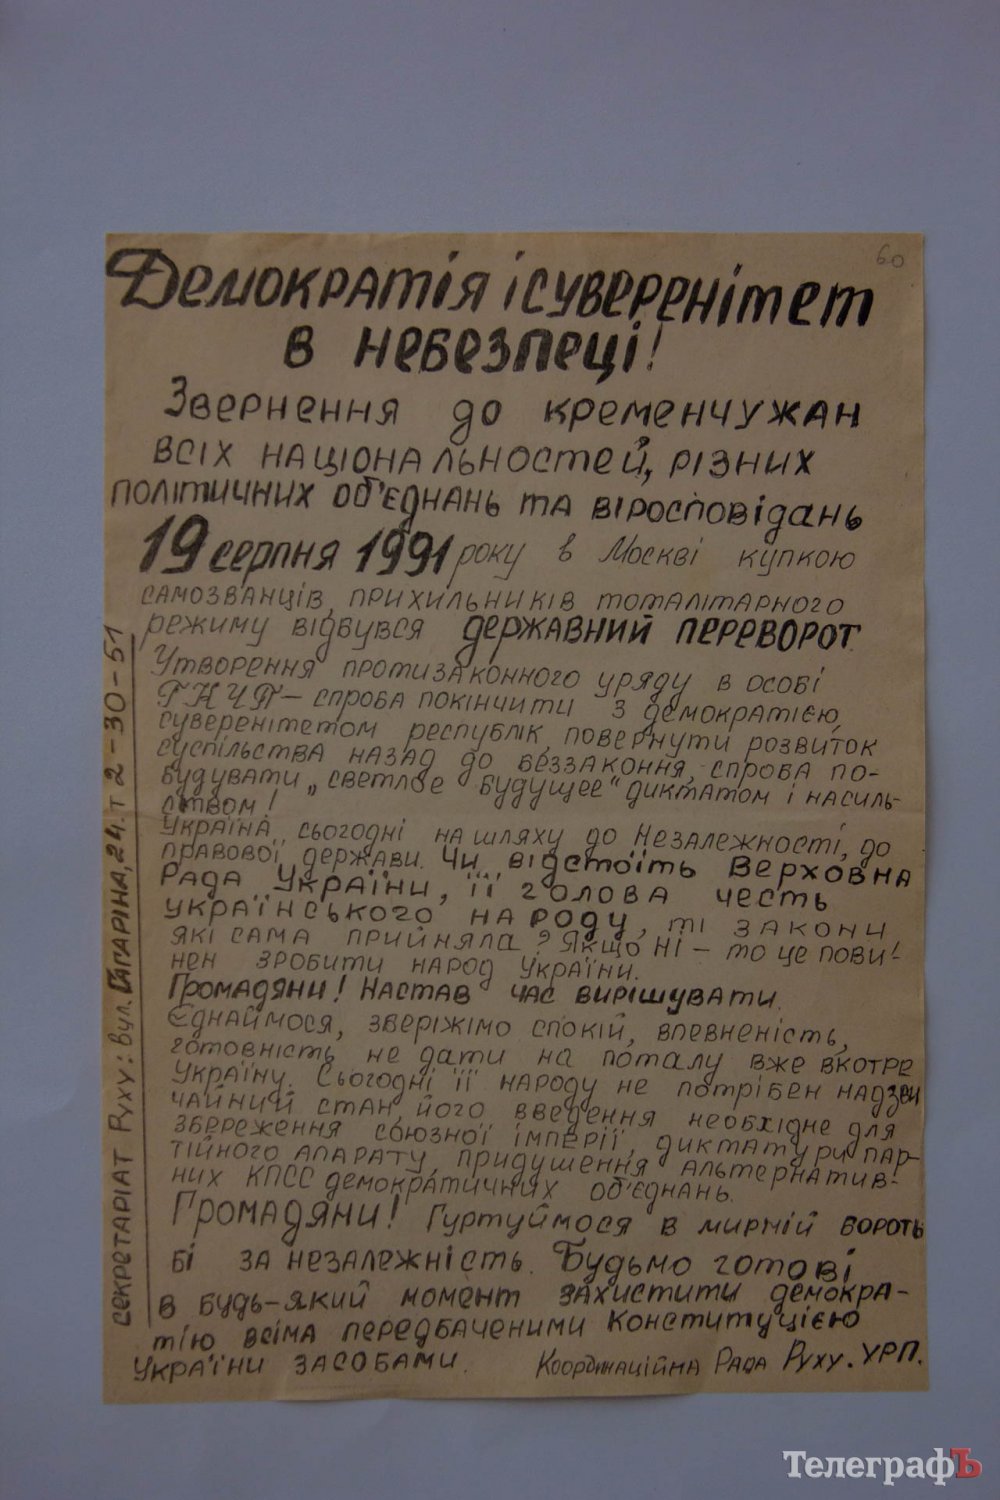 60
Демократія і суверенітет
в небезпеці!
Звернення до кременчужан
всіх національностей, різних
політичних об'єднань та віросповідань
19 серпня 1991 року в Москві купкою
самозванців, прихильників тоталітарного
режиму відбувся державний переворот.
Утворення протизаконного уряду в особі
ГКЧП – спроба покінчити з демократією,
суверенітетом республік, повернути розвиток
суспільства назад до беззаконня, спроба по-
будувати „светлое будущее" диктатом і насиль-
ством!
Україна сьогодні на шляху до Незалежності, до
правової держави. Чи відстоїть Верховна
Рада України, її голова честь
українського народу, ті закони
які сама прийняла? Якщо ні – то це пови-
нен зробити народ України.
Громадяни! Настав час вирішувати.
Єднаймося, зверіжімо спокій, впевненість,
готовність не дати на поталу вже вкотре
Україну. Сьогодні її народу не потрібен надзви
чайний стан, його введення необхідне для
збереження союзної імперії, диктатури пар-
тійного апарату, придушення альтернатив-
них КПСС демократичних об'єднань.
Громадяни! Гуртуймося в мирній бороть
бі за незалежність. Будьмо готові
в будь-який момент захистити демокра-
тію всіма передбаченими Конституцією
України засобами.
Координаційна Рада Руху. УРП.
секретаріат Руху: вул. Гагаріна, 24. т 2-30-51
ТелеграфЪ